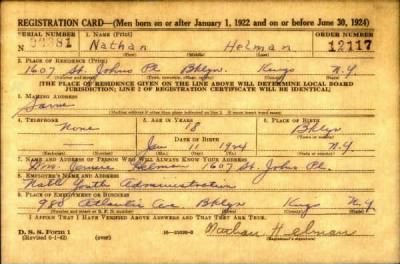 REGISTRATION CARD—(Men born on or after January 1, 1922 and on or before June 30, 1924)
SERIAL NUMBER 1. NAME (Print) ORDER NUMBER
Nathan Helman 12117
(First) (Middle) (Last)
2. PLACE OF RESIDENCE (Print)
1607 St. Johns Pl. Bklyn. Kings N.Y.
[THE PLACE OF RESIDENCE GIVEN ON THE LINE ABOVE WILL DETERMINE LOCAL BOARD
JURISDICTION; LINE 2 OF REGISTRATION CERTIFICATE WILL BE IDENTICAL]
3. MAILING ADDRESS
Same
[Mailing address if other than place indicated on line 2. If same insert word same]
4. TELEPHONE 5. AGE IN YEARS 6. PLACE OF BIRTH
None 18 Bklyn
DATE OF BIRTH
Jan 11 1924 N.Y.
7. NAME AND ADDRESS OF PERSON WHO WILL ALWAYS KNOW YOUR ADDRESS
Helman 1607 St. Johns Pl.
8. EMPLOYER'S NAME AND ADDRESS
Natl Youth Administration
9. PLACE OF EMPLOYMENT OR BUSINESS
980 Atlantic Ave Bklyn Kings N.Y.
I AFFIRM THAT I HAVE VERIFIED ABOVE ANSWERS AND THAT THEY ARE TRUE.
D. S. S. Form 1
(Revised 6-1-42) Nathan Helman
(Registrant's signature)